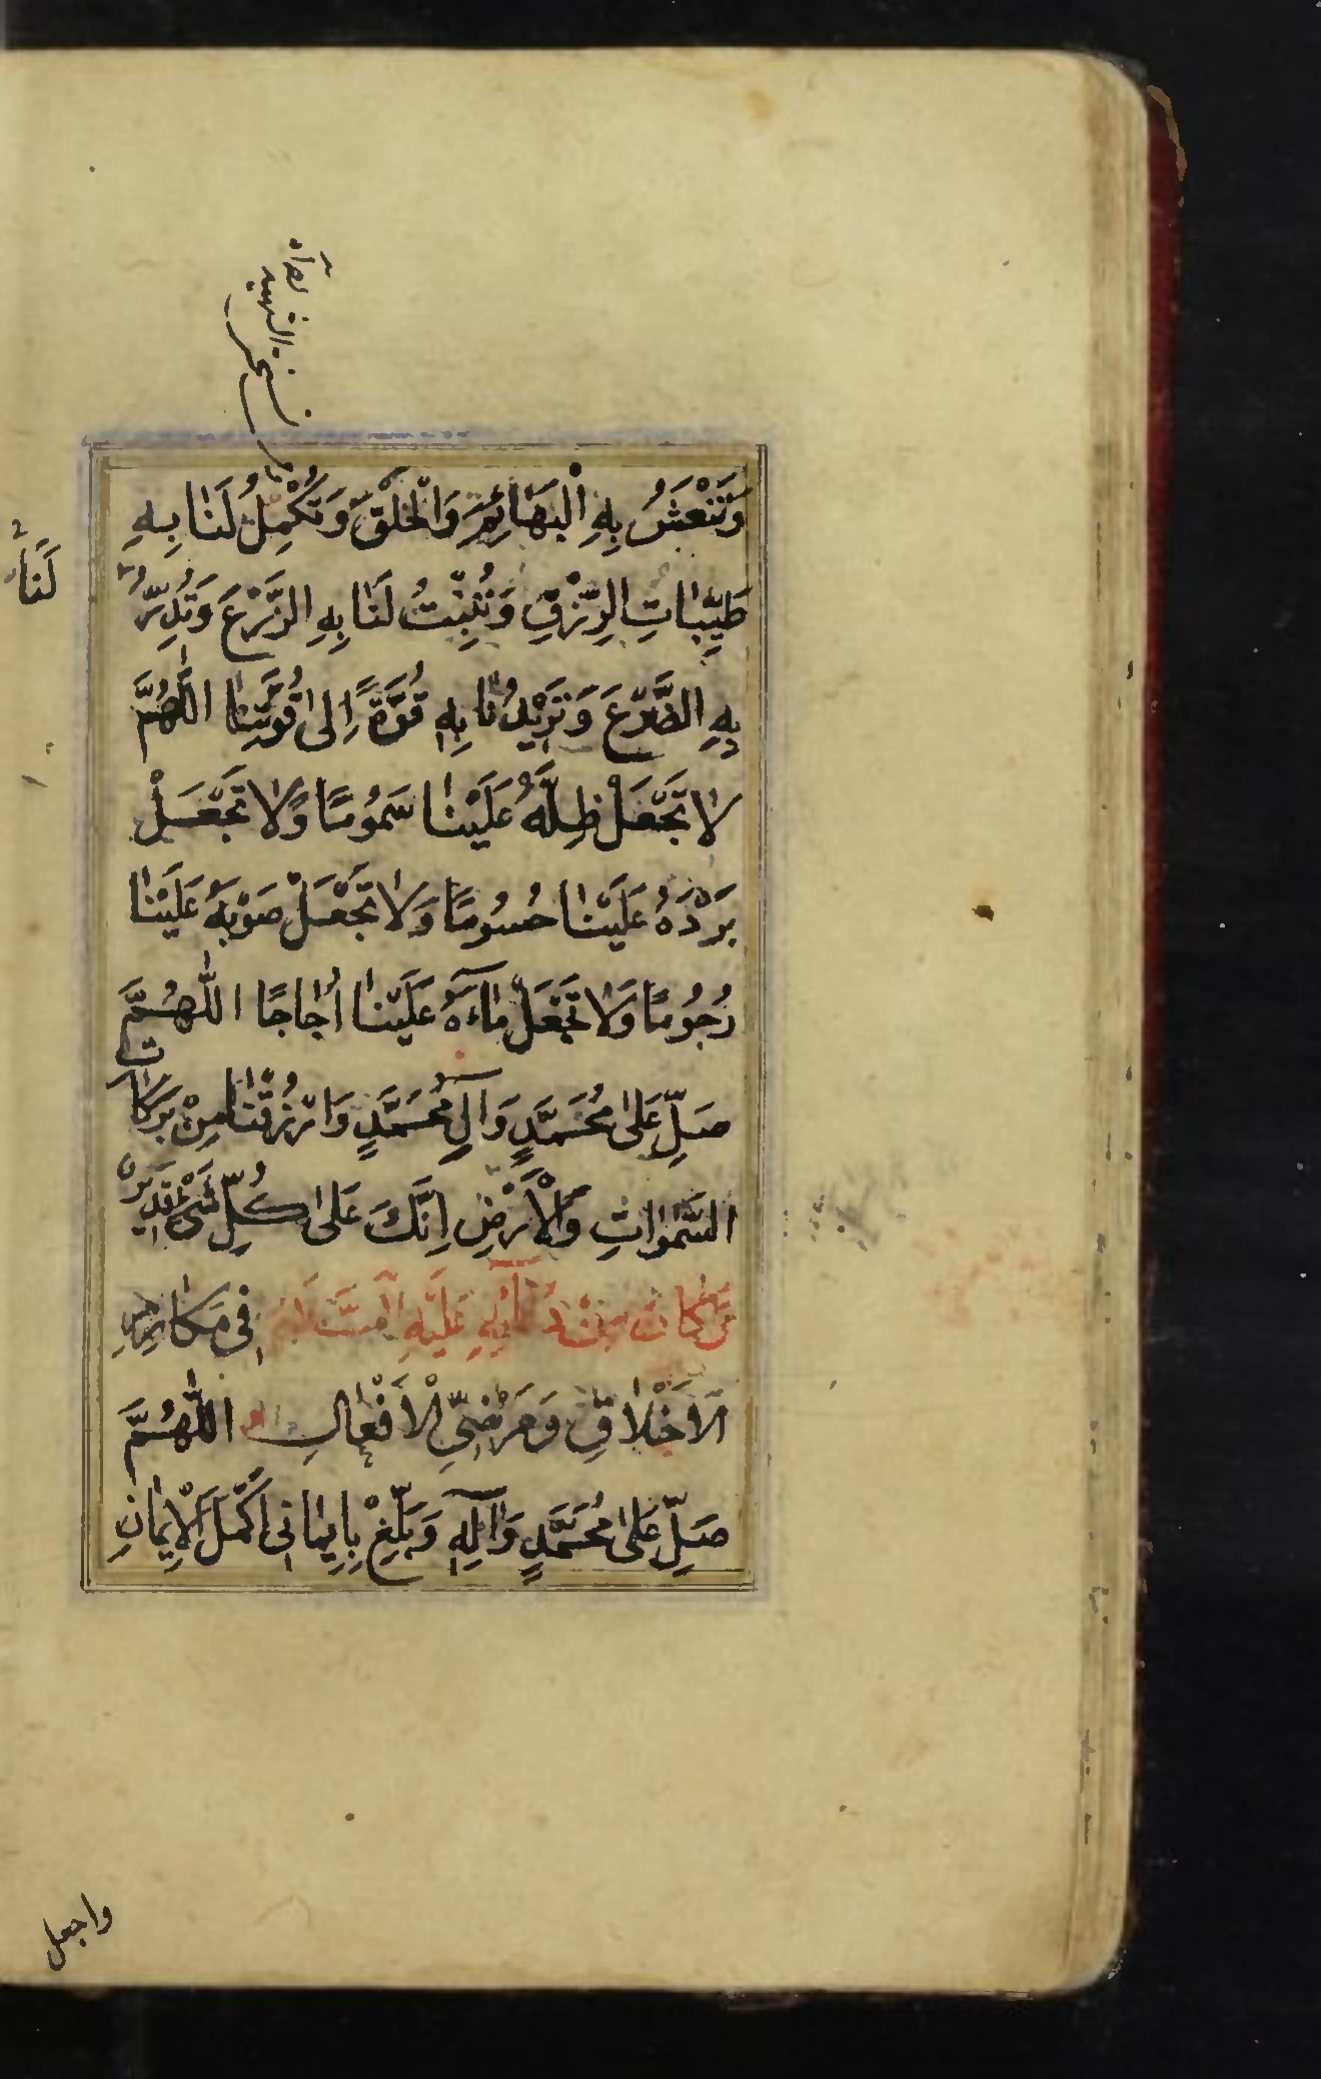 وَتَنْعَشُ بِهِ الْبَهَائِمَ وَالْخَلْقَ وَتُكْمِلُ لَنَا بِهِ
لَنَا
طَيِّبَاتِ الرِّزْقِ وَتُنْبِتُ لَنَا بِهِ الزَّرْعَ وَتُدِرُّ
بِهِ الضَّرْعَ وَتَزِيْدُنَا بِهِ قُوَّةً اِلىٰ قُوَّتِنَا اللّٰهُمَّ
لَا تَجْعَلْ ظِلَّهُ عَلَيْنَا سَمُومًا وَلَا تَجْعَلْ
بَرْدَهُ عَلَيْنَا حُسُومًا وَلَا تَجْعَلْ صَوْبَهُ عَلَيْنَا
رُجُومًا وَلَا تَجْعَلْ مَآءَهُ عَلَيْنَا اُجَاجًا اللّٰهُمَّ
صَلِّ عَلىٰ مُحَمَّدٍ وَآلِ مُحَمَّدٍ وَارْزُقْنَا مِنْ بَرَكَاتِ
السَّمٰوَاتِ وَالْاَرْضِ اِنَّكَ عَلىٰ كُلِّ شَىْءٍ قَدِيْرٌ
وَكَانَ مِنْ دُعَآئِهِ عَلَيْهِ السَّلَامُ فِى مَكَارِمِ
الْاَخْلَاقِ وَمَرْضِىِّ الْاَفْعَالِ اللّٰهُمَّ
صَلِّ عَلىٰ مُحَمَّدٍ وَآلِهِ وَبَلِّغْ بِاِيمَانِى اَكْمَلَ الْاِيمَانِ
واجعل